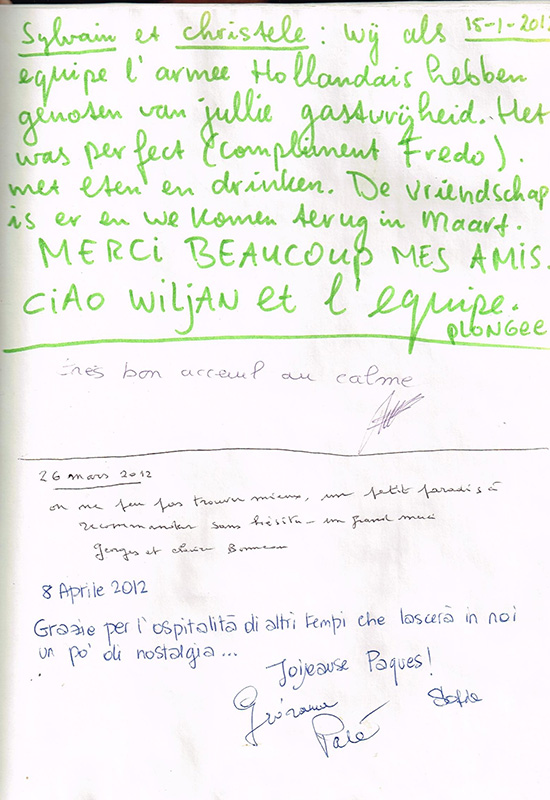 Sylvain et christele : wij als 15-1-2012
equipe l'armee Hollandais hebben
genoten van jullie gastvrijheid. Het
was perfect (compliment Fredo).
met eten en drinken. De vriendschap
is er en we komen terug in Maart.
MERCI BEAUCOUP MES AMIS.
CIAO WILJAN et l'equipe.
PLONGEE
très bon acceuil au calme
26 mars 2012
on ne peu pas trouver mieux, un petit paradis à
recommander sans hésiter - un grand merci
Georges et
8 Aprile 2012
Grazie per l'ospitalità di altri tempi che lascerà in noi
un po' di nostalgia ...
Joijeause Paques!